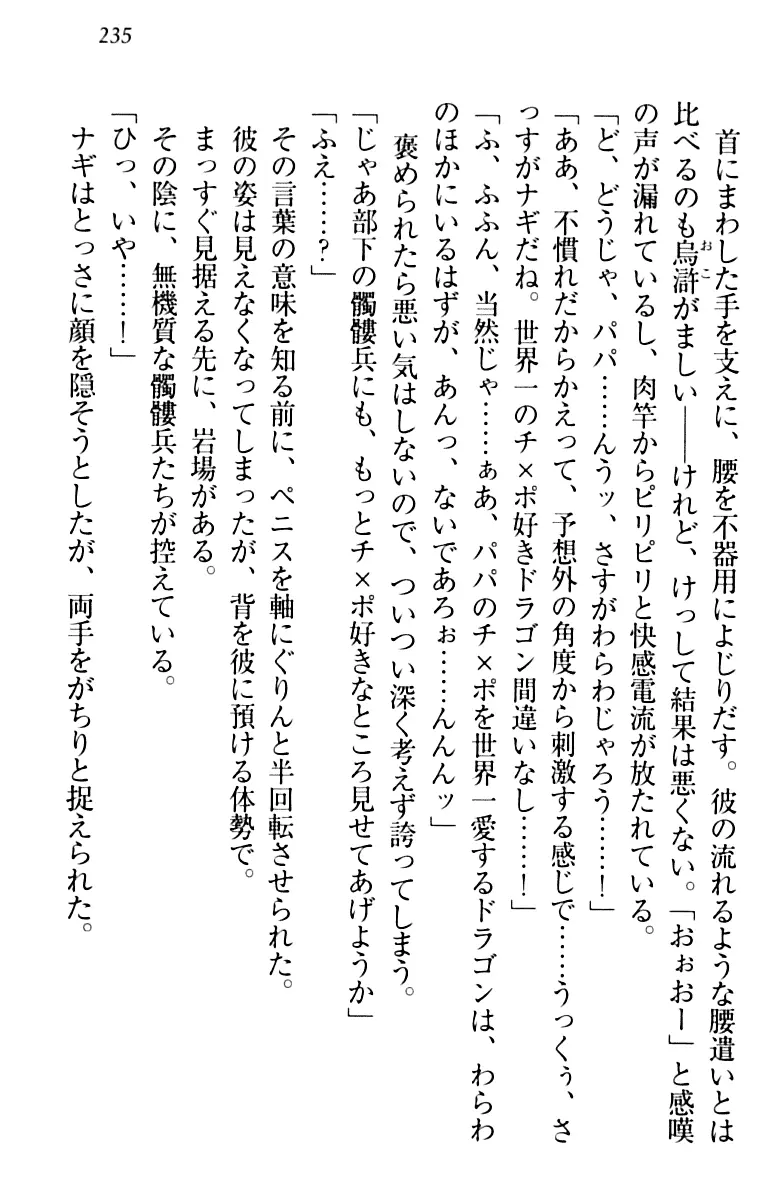 235
首にまわした手を支えに、腰を不器用によじりだす。彼の流れるような腰遣いとは
比べるのも烏滸がましい――けれど、けっして結果は悪くない。「おぉおー」と感嘆
の声が漏れているし、肉竿からピリピリと快感電流が放たれている。
「ど、どうじゃ、パパ……んうッ、さすがわらわじゃろう……！」
「ああ、不慣れだからかえって、予想外の角度から刺激する感じで……うっくぅ、さ
っすがナギだね。世界一のチ×ポ好きドラゴン間違いなし……！」
「ふ、ふふん、当然じゃ……ぁあ、パパのチ×ポを世界一愛するドラゴンは、わらわ
のほかにいるはずが、あんっ、ないであろぉ……んんんッ」
褒められたら悪い気はしないので、ついつい深く考えず誇ってしまう。
「じゃあ部下の髑髏兵にも、もっとチ×ポ好きなところ見せてあげようか」
「ふえ……？」
その言葉の意味を知る前に、ペニスを軸にぐりんと半回転させられた。
彼の姿は見えなくなってしまったが、背を彼に預ける体勢で。
まっすぐ見据える先に、岩場がある。
その陰に、無機質な髑髏兵たちが控えている。
「ひっ、いや……！」
ナギはとっさに顔を隠そうとしたが、両手をがちりと捉えられた。